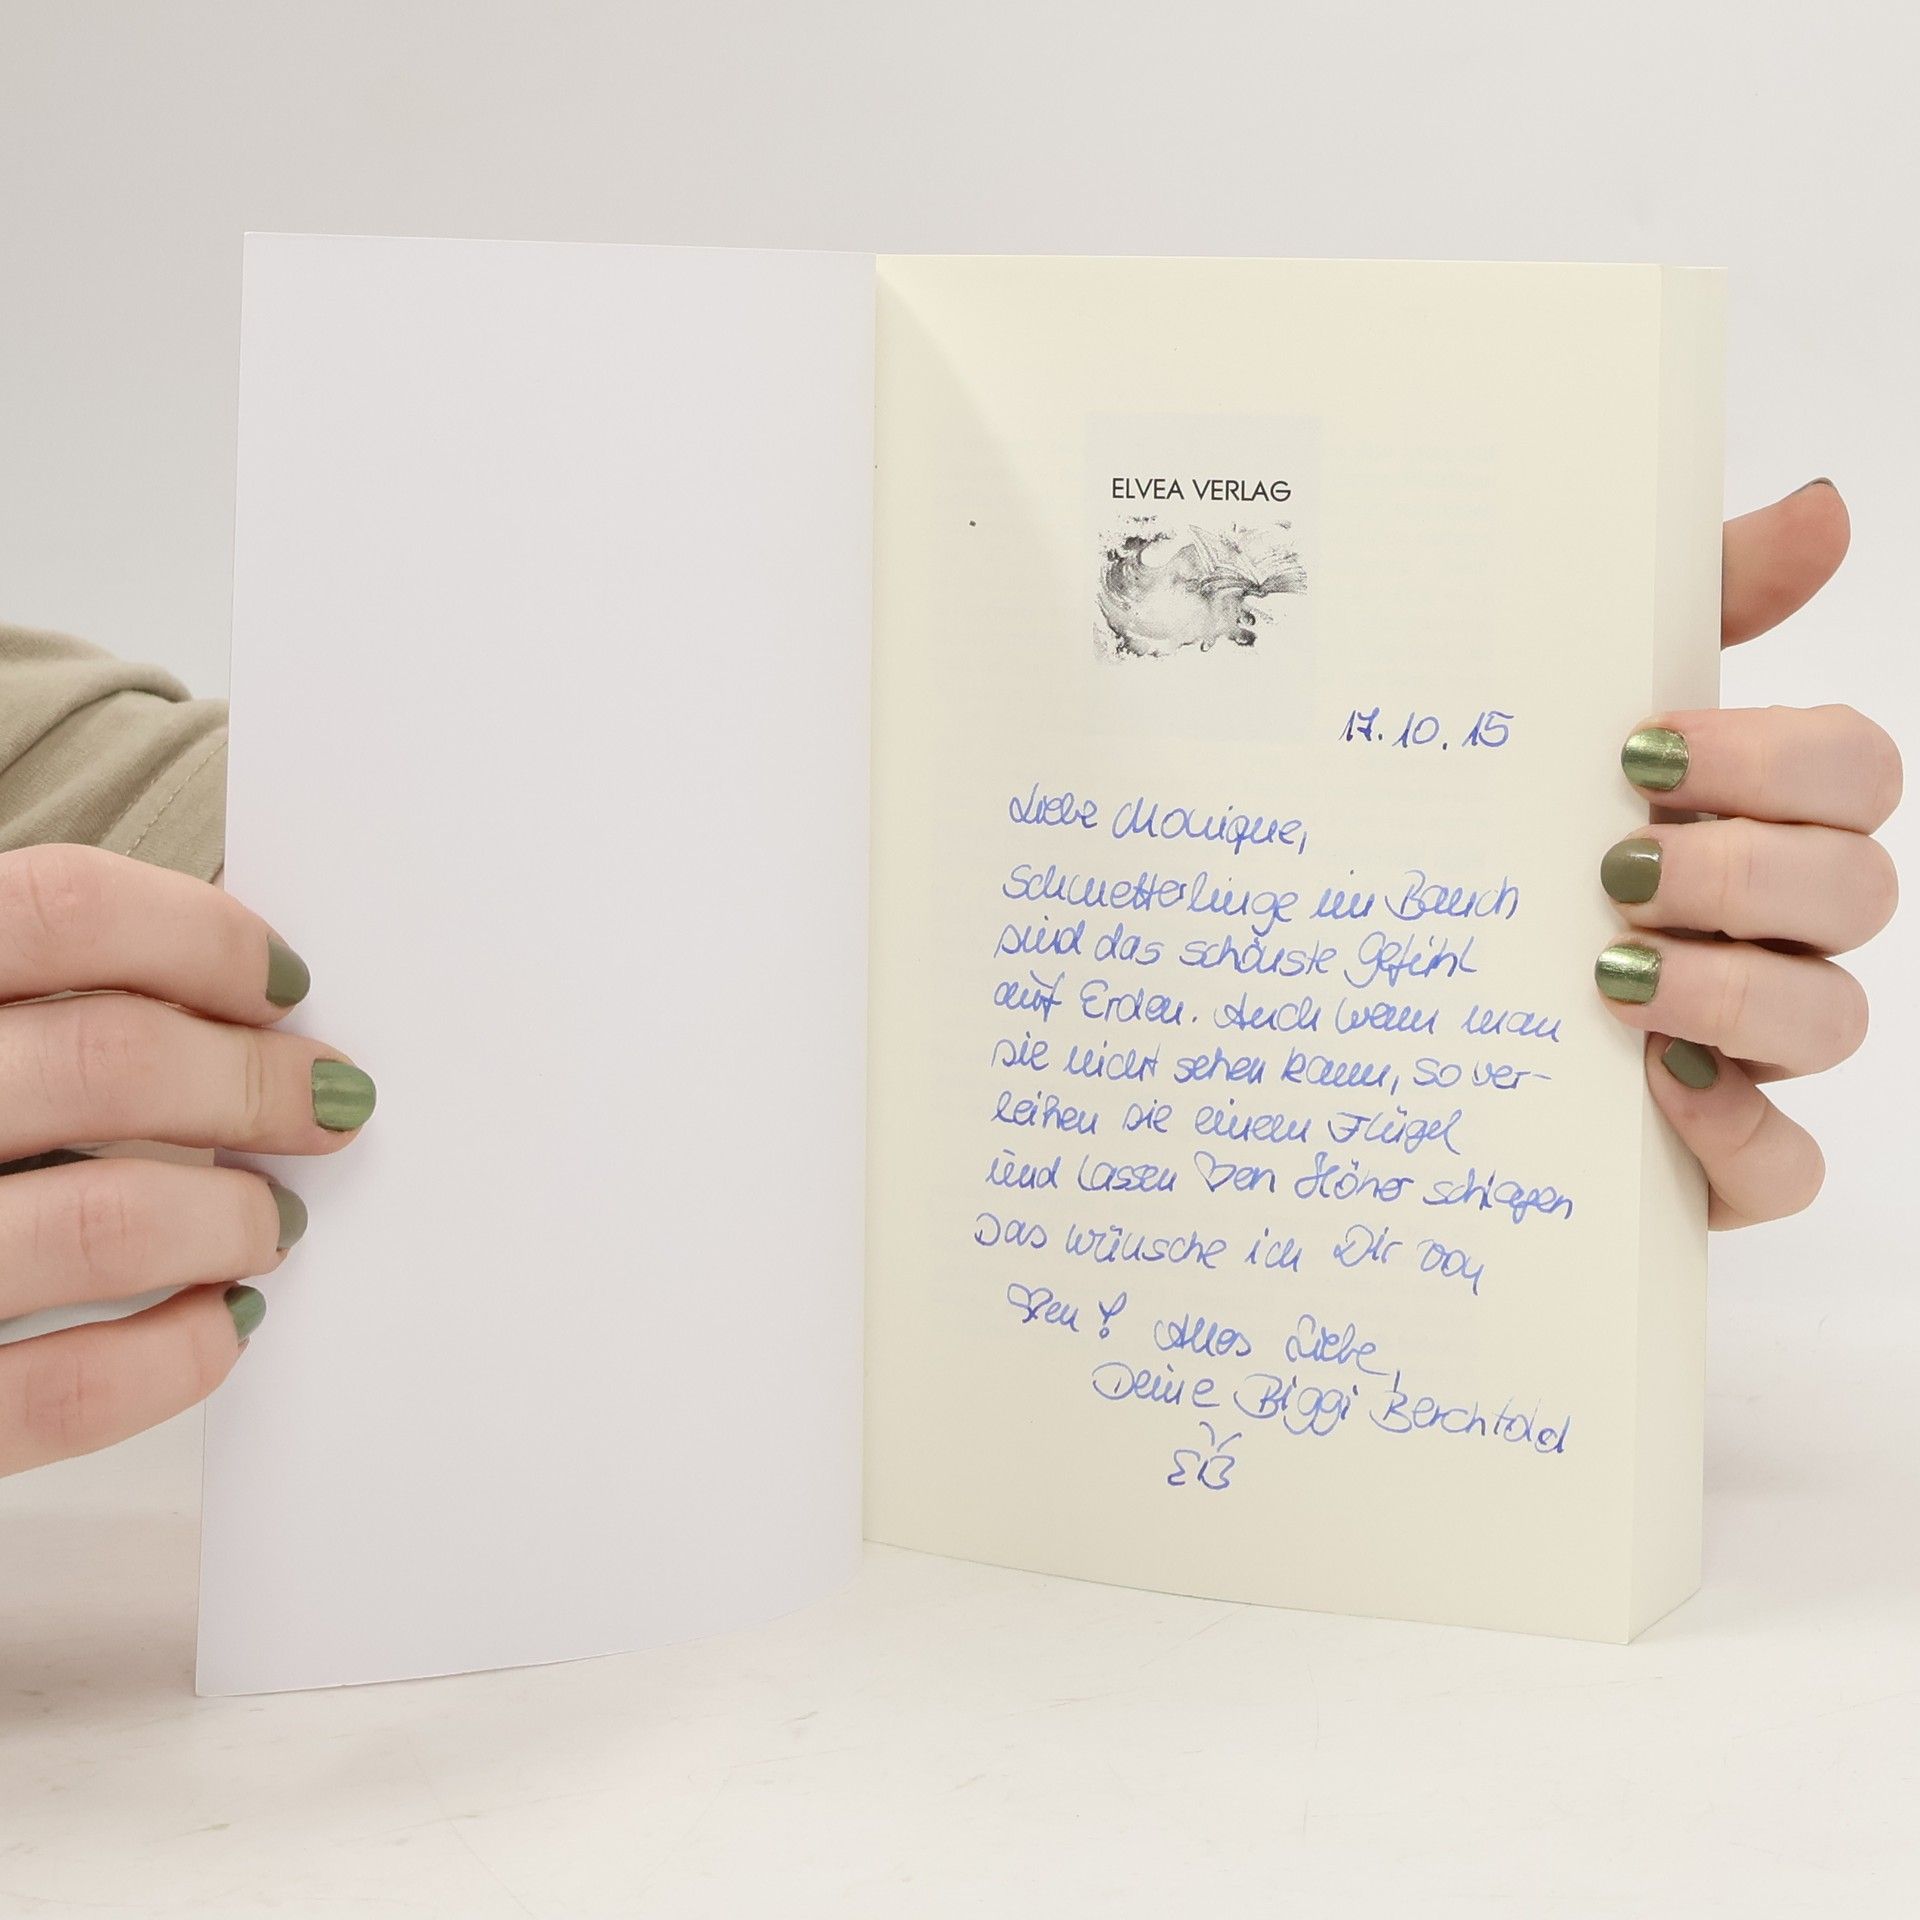 ELVEA VERLAG
17.10.15
Liebe Monique,
Schmetterlinge im Bauch
sind das schönste Gefühl
auf Erden. Auch wenn man
sie nicht sehen kann, so ver-
leihen sie einem Flügel
und lassen ♡en höher schlagen
Das wünsche ich Dir von
♡en! Alles Liebe,
Deine Biggi Berchtold